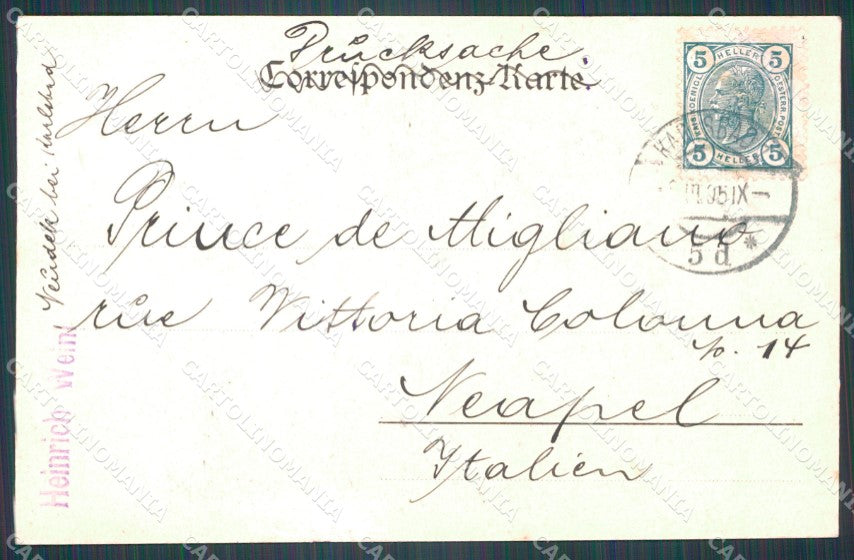 Drucksache
Correspondenz-Karte.
Herrn
Prince de Migliano
rue Vittoria Colonna
No. 14
Neapel
Italien
Neudek bei Karlsbad
Heinrich Weinl
5 HELLER 5
KAIS. KÖNIGL. OESTERR. POST
5 HELLER 5
KARLSBAD
05 IX
5 d *
CARTOLINOMANIA